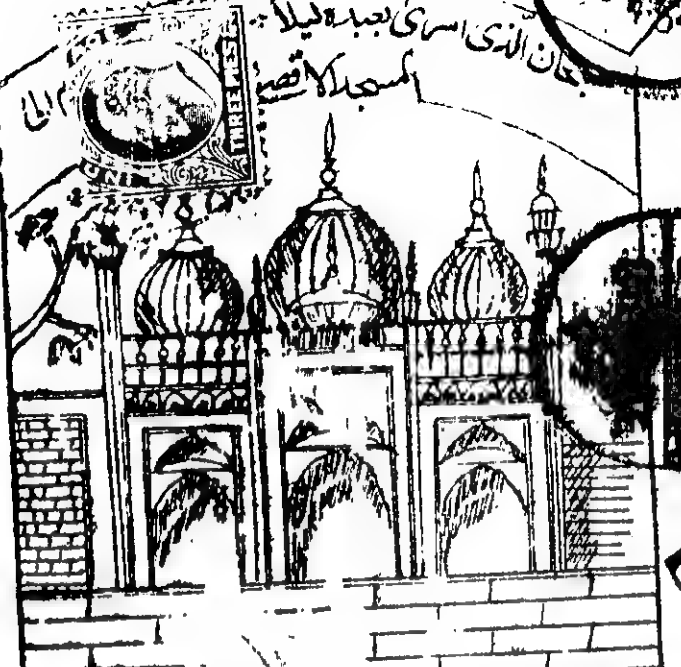 سبحان الّذی اسریٰ بعبدہ لیلاً
المسجد الاقصے
الی
THREE PIES